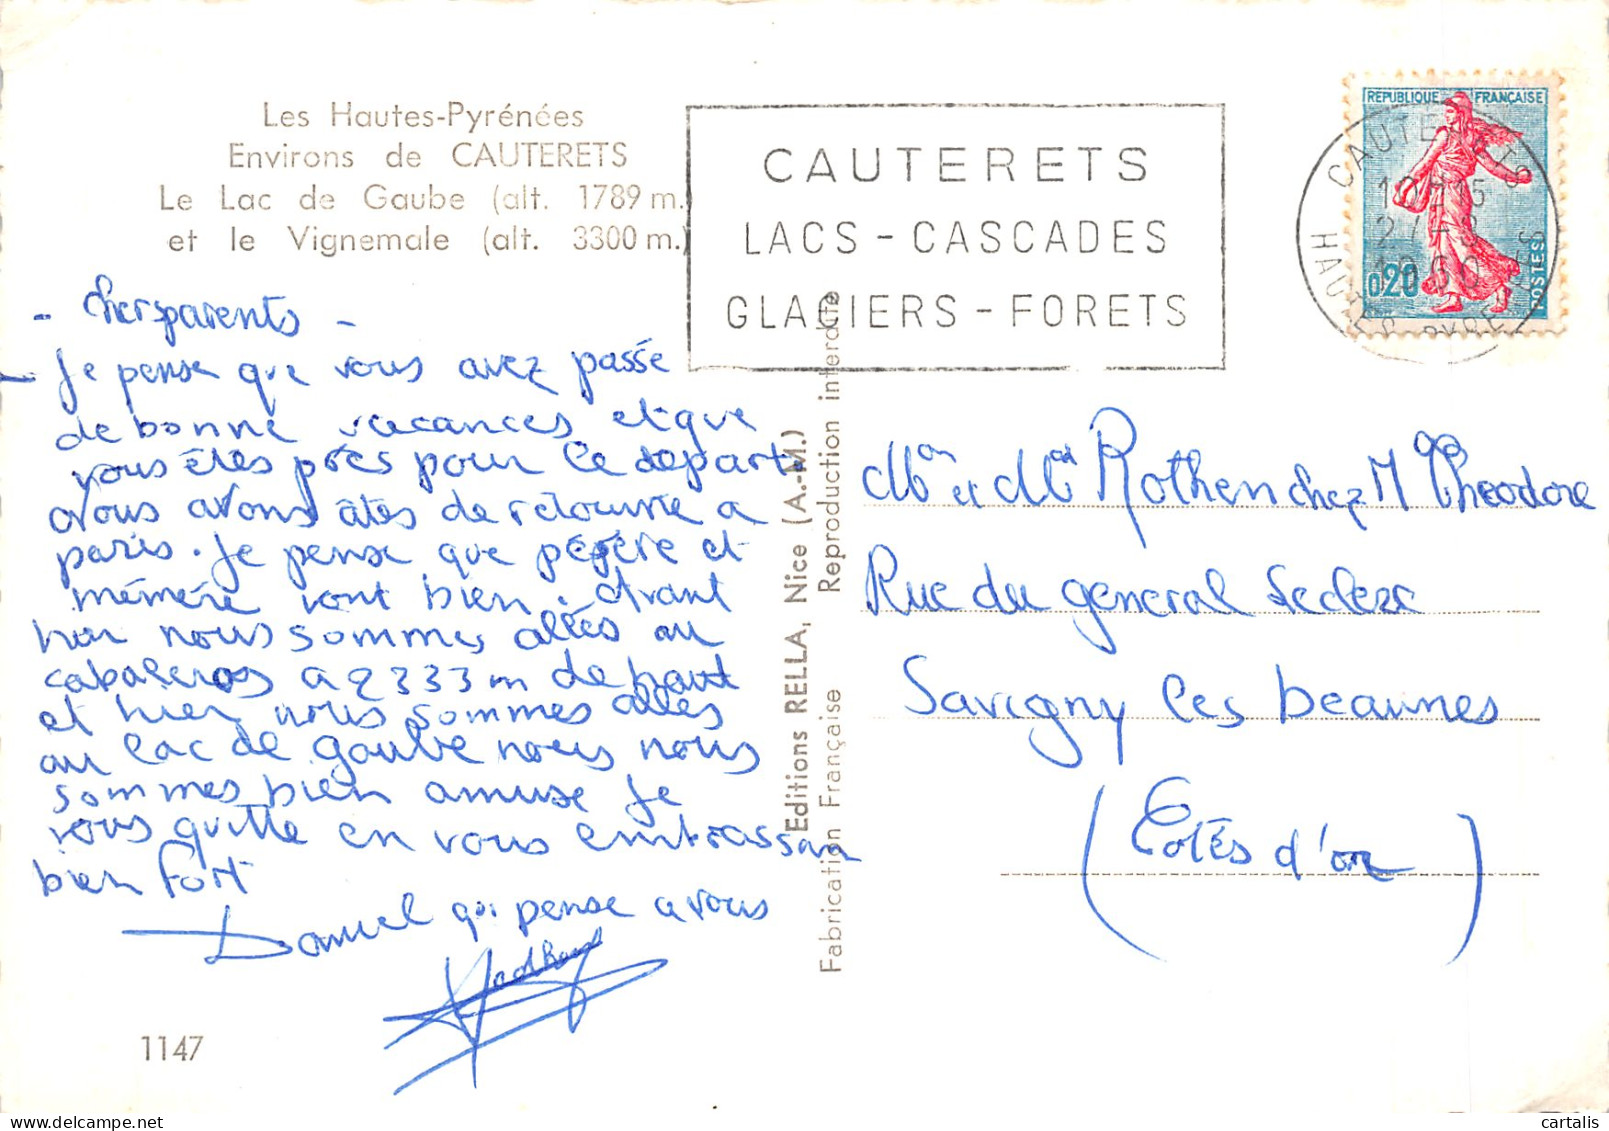 Les Hautes-Pyrénées
Environs de CAUTERETS
Le Lac de Gaube (alt. 1789 m.)
et le Vignemale (alt. 3300 m.)
CAUTERETS
LACS - CASCADES
GLACIERS - FORETS
REPUBLIQUE FRANÇAISE
0,20
POSTES
CAUTERETS
HAUTES-PYRENEES
- Chersparents -
- Je pense que vous avez passée
de bonne vacances et que
vous êtes près pour le départ
Nous avons âtes de retourne a
paris. Je pense que pépère et
mémère vont bien. Avant
hier nous sommes allés au
cabaleros a 2333 m de haut
et hier nous sommes allés
au lac de gaube nous nous
sommes bien amuse Je
vous quitte en vous embrassan
bien fort
Daniel qui pense a vous
1147
Editions RELLA, Nice (A.-M.)
Fabrication Française Reproduction interdite
Mon et Md Rothen chez M Theodore
Rue du general Leclerc
Savigny les beaunes
(Cotés d'or)
cartalis